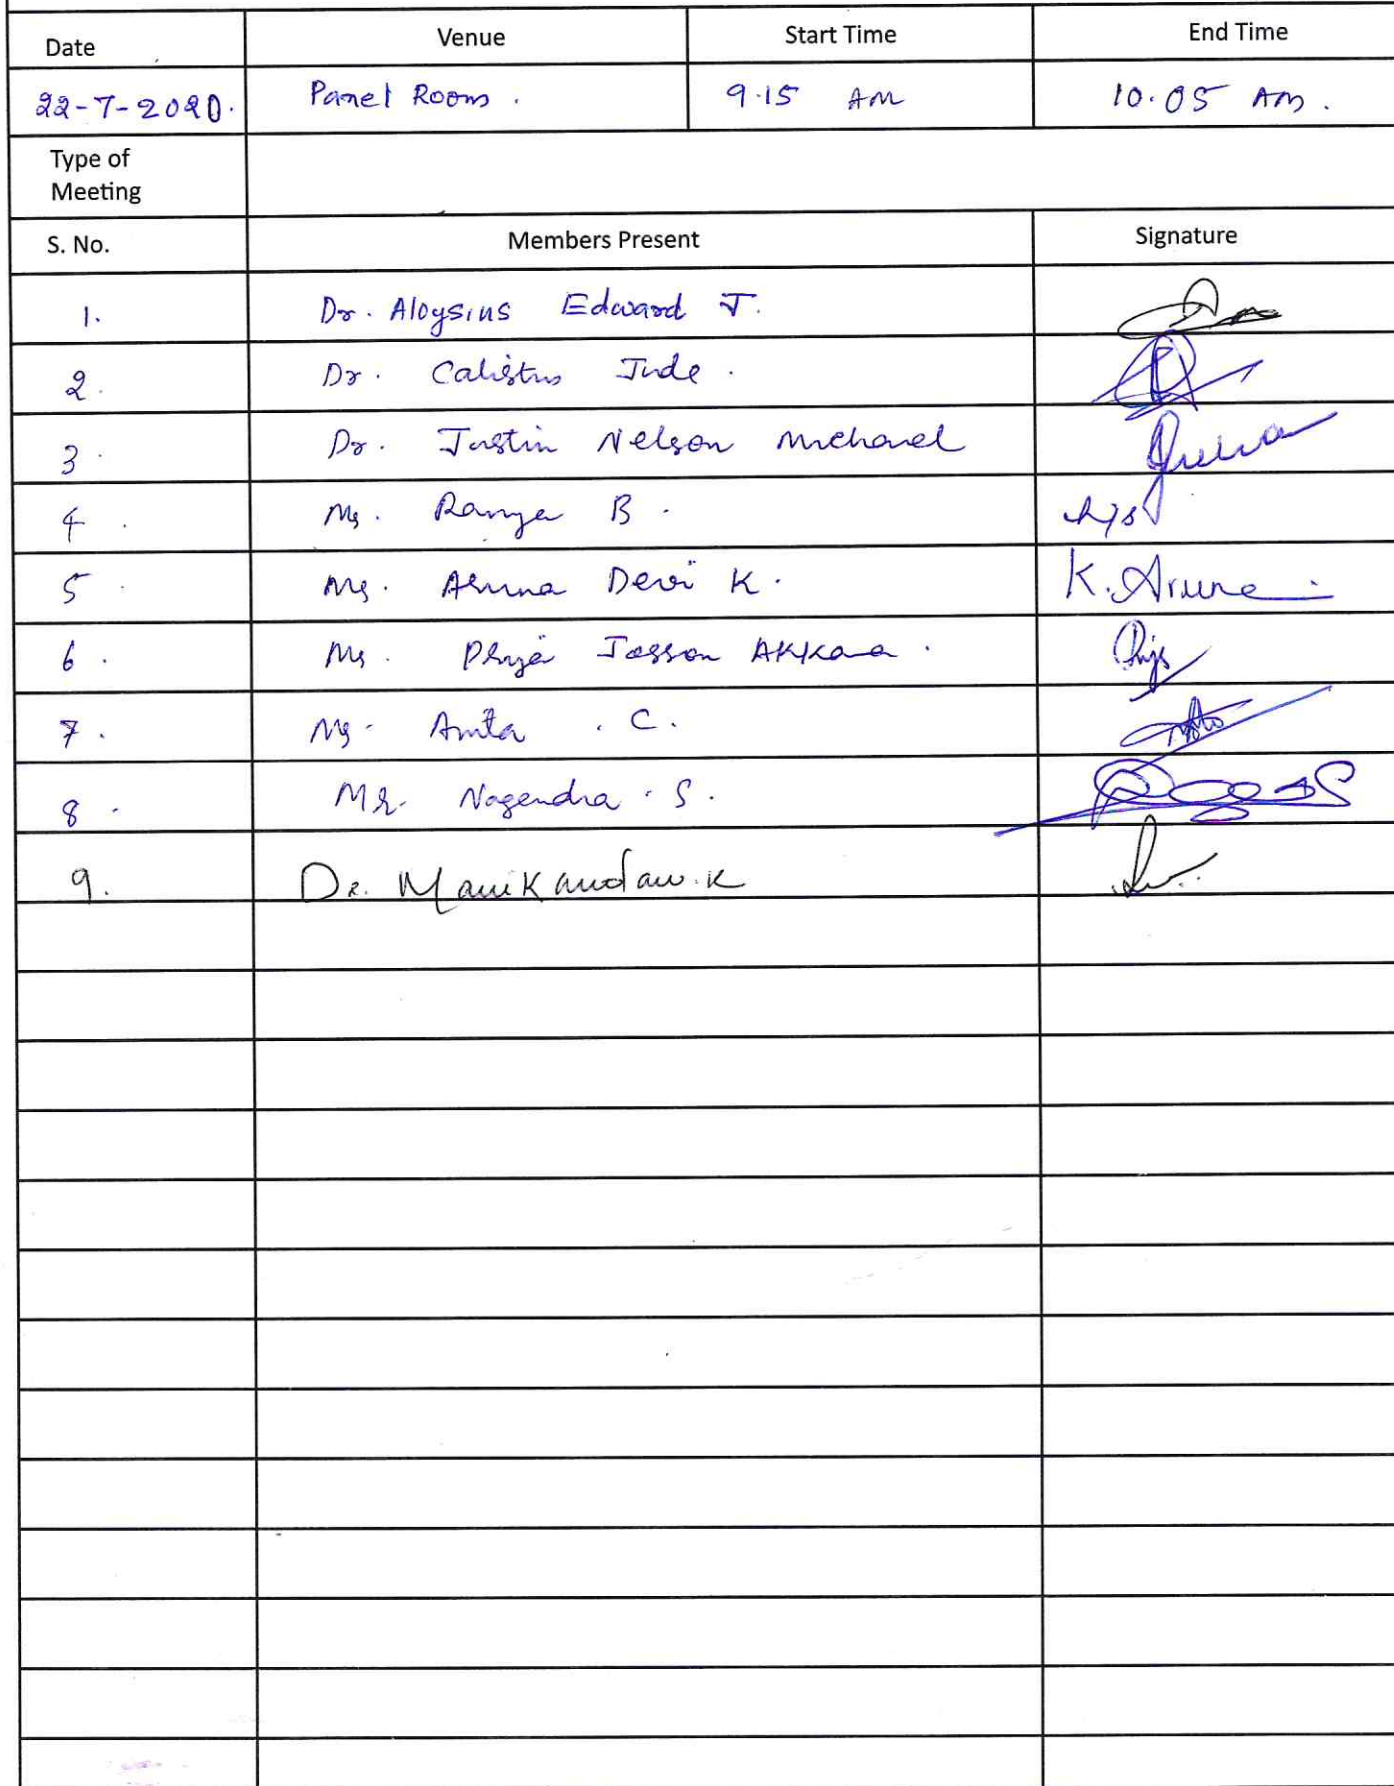 Date Venue Start Time End Time
22-7-2020. Panel Room. 9.15 AM 10.05 AM.
Type of
Meeting
S. No. Members Present Signature
1. Dr. Aloysius Edward J.
2. Dr. Calistus Jude.
3. Dr. Justin Nelson Michael
4. Ms. Ramya B.
5. Ms. Aruna Devi K. K. Aruna
6. Ms. Priya Josson Akkara.
7. Ms. Amita. C.
8. Mr. Nagendra. S.
9. Dr. Manikandan. K